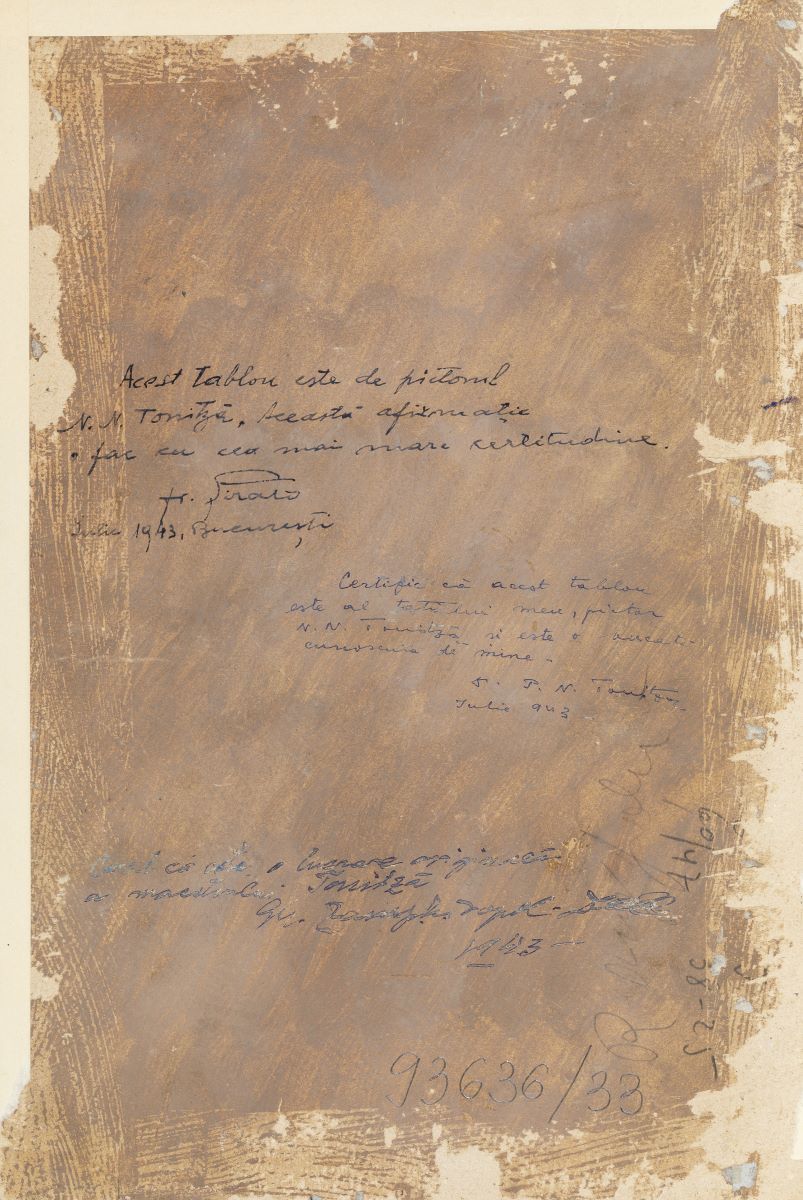 Acest tablou este de pictorul
N. N. Tonitză, Această afirmație
o fac cu cea mai mare certitudine.
fr. Șirato
Iulie 1943, București
Certific că acest tablou
este al tatălui meu, pictor
N. N. Tonitză și este o
cunoscută de mine -
P. N. Tonitza
Iulie 943 -
că este o lucrare originală
a maestrului Tonitză
1943 -
93636/33